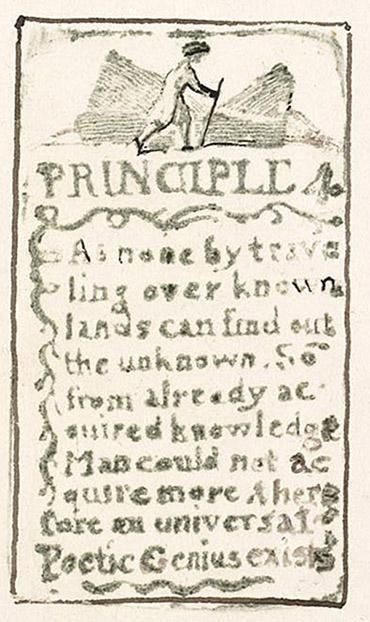 PRINCIPLE 4.
As none by trave
ling over known
lands can find out
the unknown. So
from already ac-
quired knowledge
Man could not ac
quire more. there
fore an universal
Poetic Genius exists